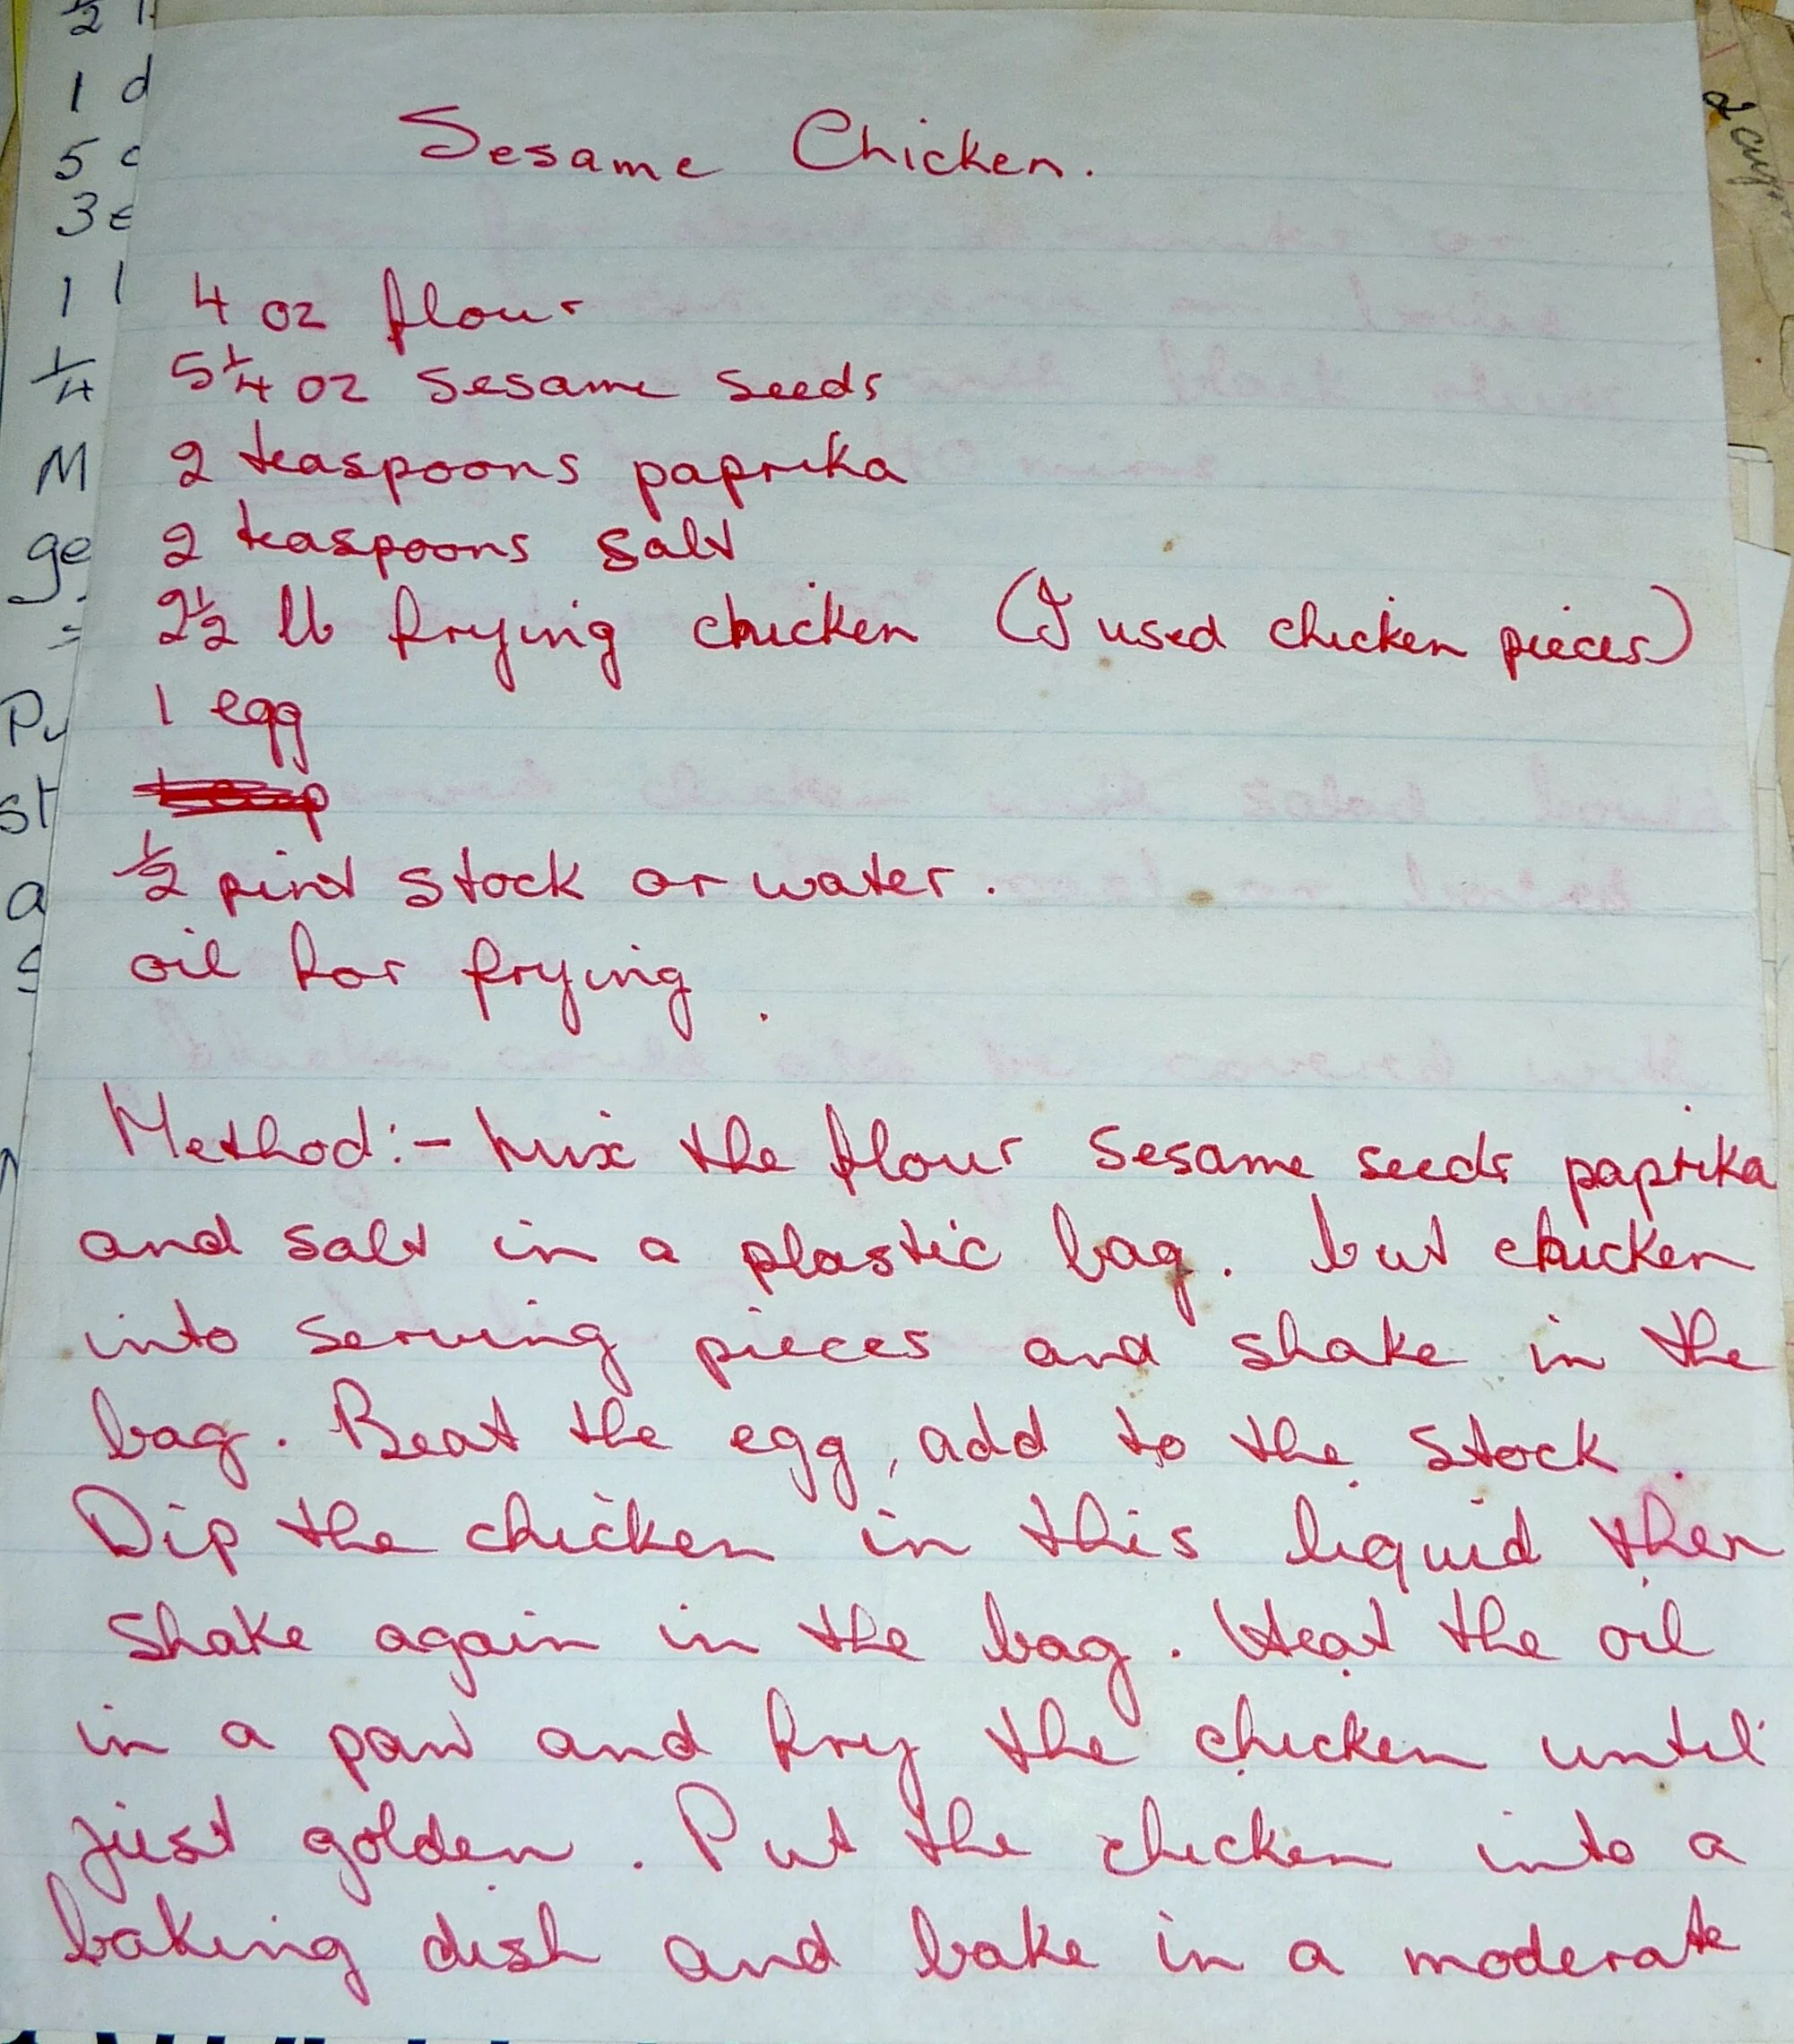 Sesame Chicken.
4 oz flour
5¼ oz sesame seeds
2 teaspoons paprika
2 teaspoons salt
2½ lb frying chicken (I used chicken pieces)
1 egg
½ pint stock or water.
oil for frying.
Method:- Mix the flour sesame seeds paprika
and salt in a plastic bag. but chicken
into serving pieces and shake in the
bag. Beat the egg, add to the stock.
Dip the chicken in this liquid then
shake again in the bag. Heat the oil
in a pan and fry the chicken until
just golden. Put the chicken into a
baking dish and bake in a moderate